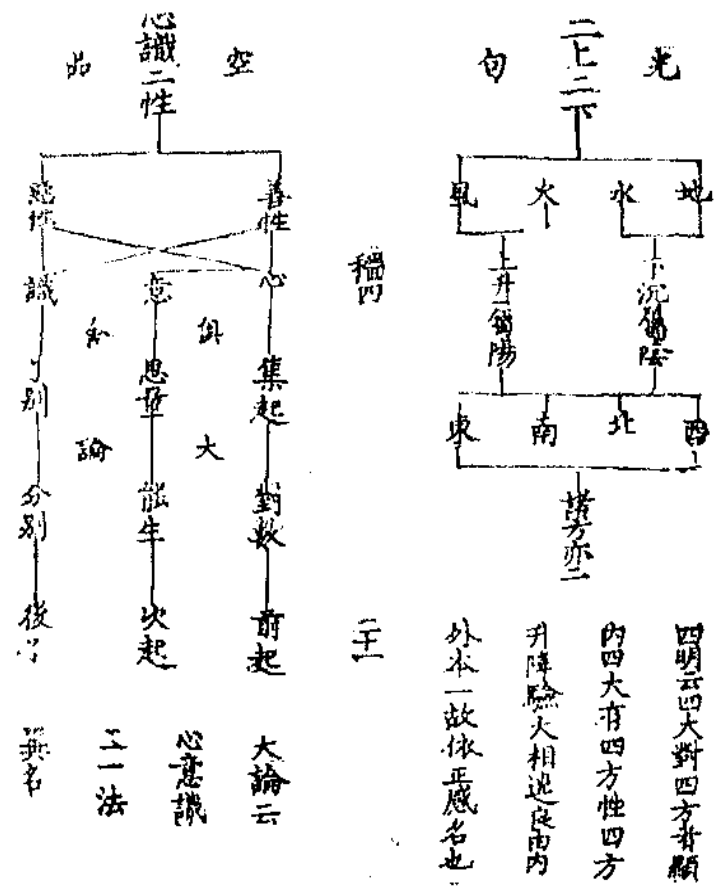 光 句
二上二下
地 水 火 風
下沉屬陰
上升屬陽
西 北 南 東
諸方亦二
四明云四大對四方者顯
內四大有四方性四方
升降驗火相逃良由內
外本一故依正感名也
二十一
空 品
心識二性
善性 惡性
心 意 識
俱 大 論
集起 思量 了別
對數 能生 分別
前起 次起 後了
大論云
心意識
三一法
異名